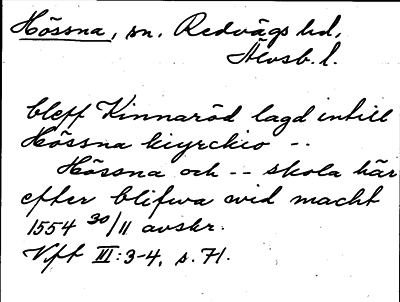 Hössna, sn. Redvägs hd.
Älvsb. l.
bleff Kinnaröd lagd intill
Hössna kiyrckio --
Hössna och -- skola här
efter blifwa wid macht
1554 30/11 avskr.
Vft III:3-4, s. 71.